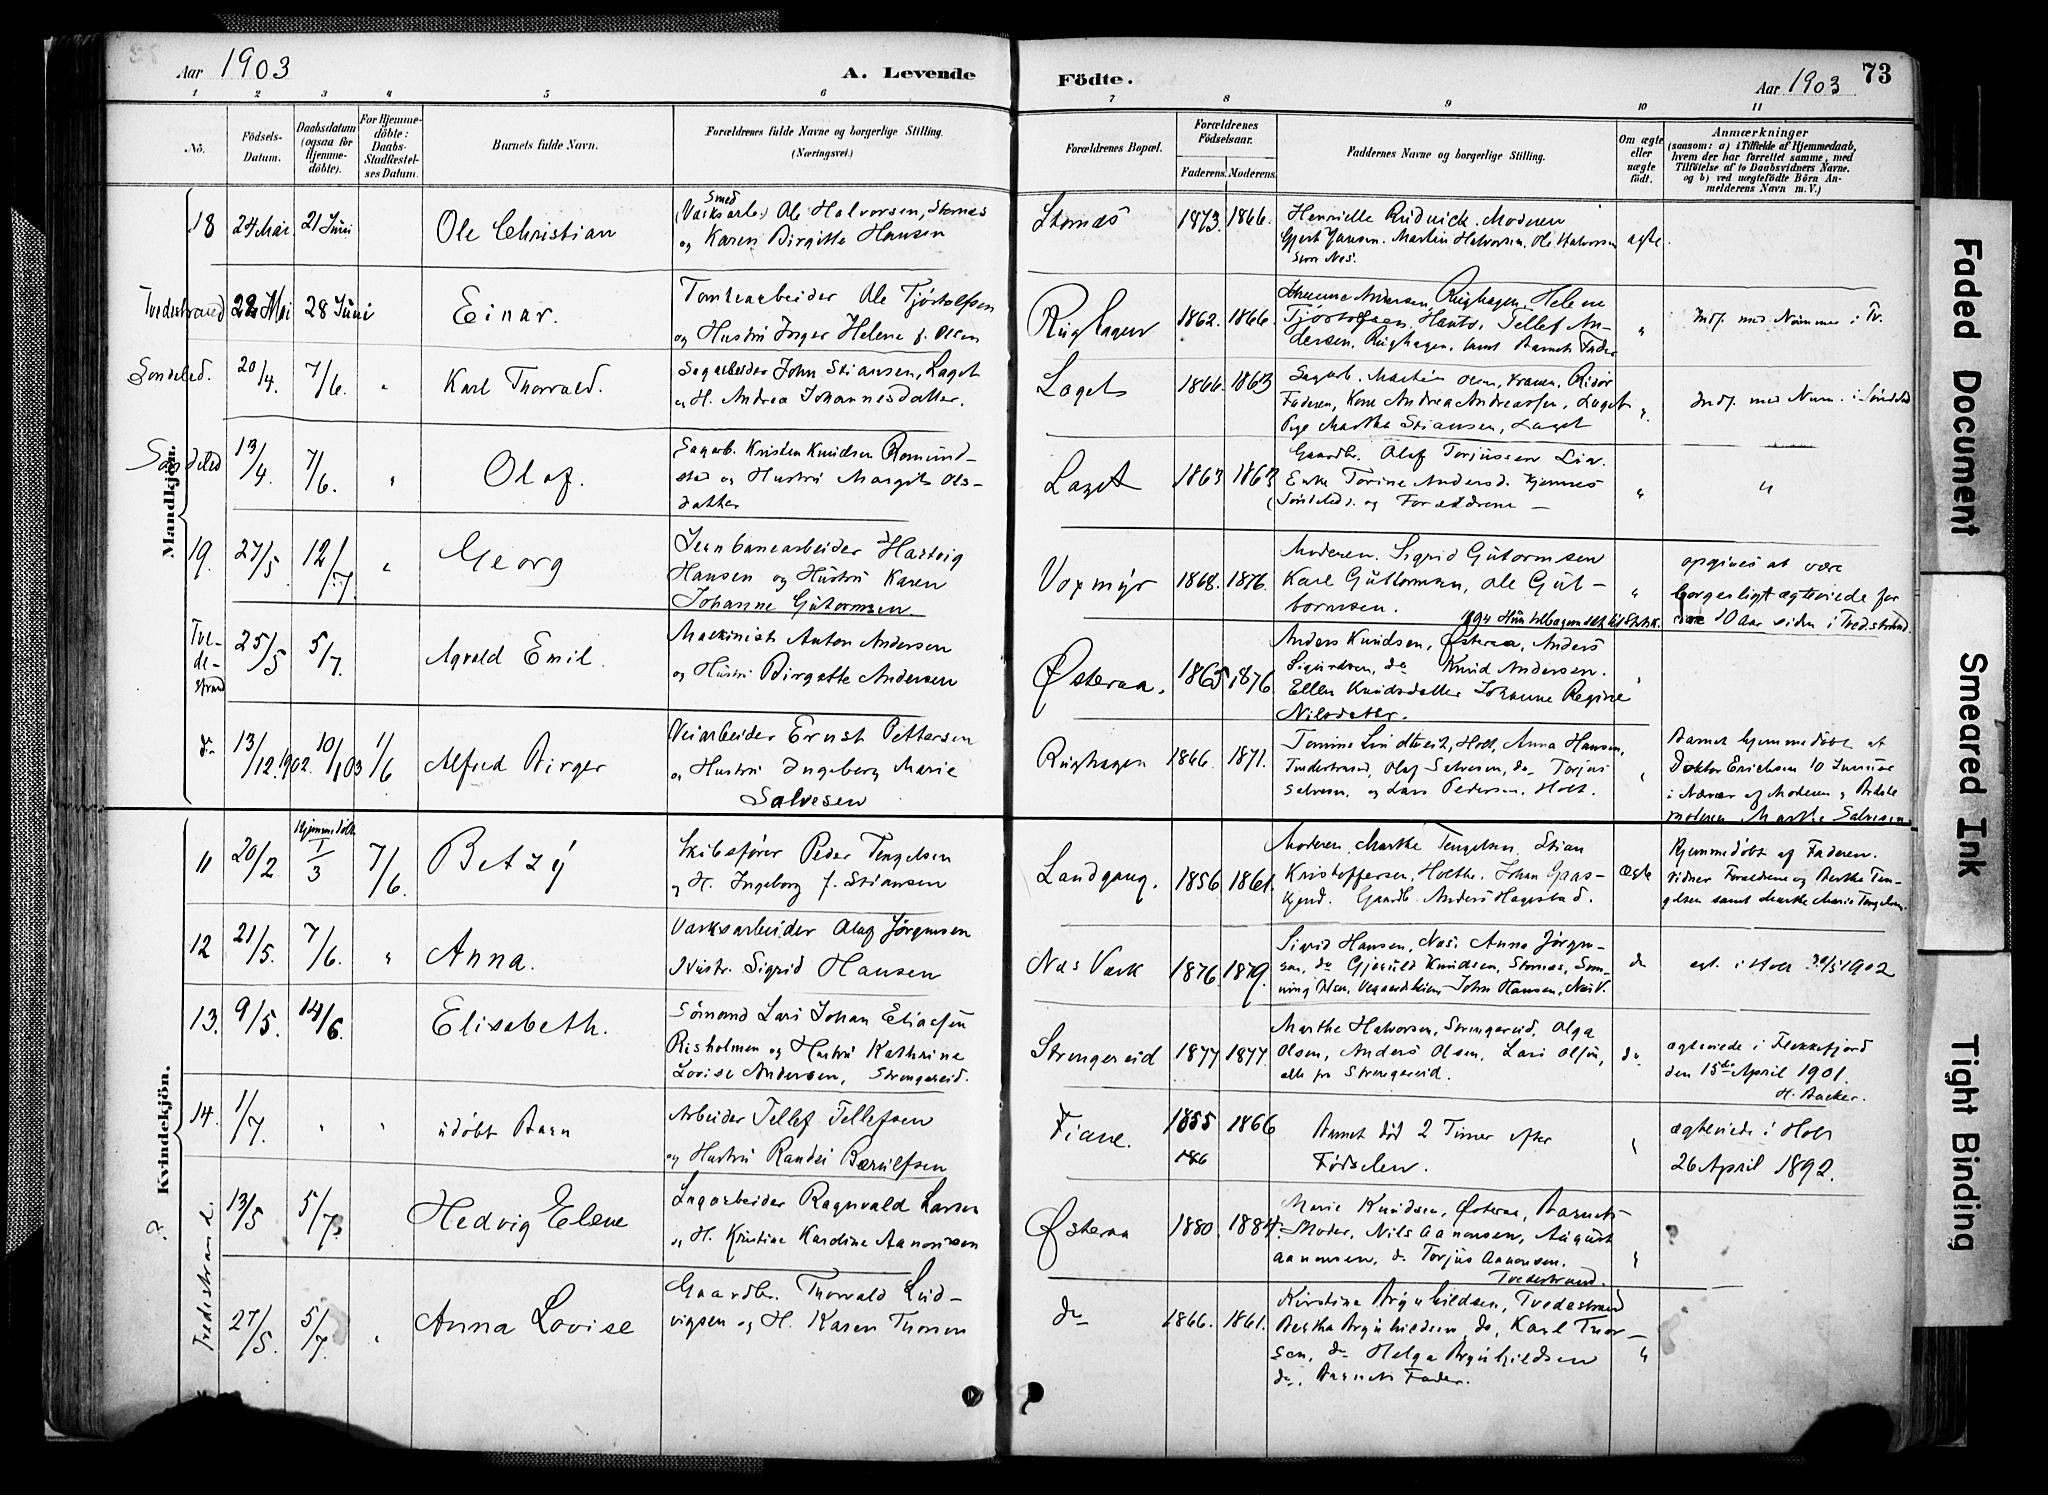 Aar 1903
A. Levende
Födte.
Aar 1903
73
1 2 3 4 5 6 7 8 9 10 11
No.
Födsels-
Datum.
Daabsdatum
(ogsaa for
Hjemme-
döbte).
For Hjemme-
döbte:
Daabs-
Stadfestel-
ses Datum.
Barnets fulde Navn.
Forældrenes fulde Navne og borgerlige Stilling.
(Næringsvei.)
Forældrenes Bopæl.
Forældrenes
Födselsaar.
Faderens. Moderens.
Faddernes Navne og borgerlige Stilling.
Om ægte
eller
uægte
födt.
Anmærkninger
(saasom: a) i Tilfælde af Hjemmedaab,
hvem der har forrettet samme, med
Tilföielse af to Daabsvidners Navne.
og b) ved uægtefödte Börn An-
melderens Navn m. V.)
Mandkjön.
18 24 Mai 21 Juni
Ole Christian
Smed
(Værksarb.) Ole Halvorsen, Stornæs
og Karen Birgitte Hansen
Stornæs
1873. 1866.
Moderen
Gjert Jansen. Martin Halvorsen, Ole Halvorsen
Stor Nes.
ægte.
Tvedestrand
28 Juni
Einar.
Tomtearbeider Ole Tjöstolfsen
og Hustru Inger Helene f. Olsen
Rughagen
1862. 1866.
Andersen Rughagen. Helene
Tjöstolfsen, Hanto, Tellef An-
dersen, Rughagen, samt Barnets Fader
"
Indf. med Nummer i Tv.
Söndeled.
20/4. 7/6. "
Karl Thorvald.
Sagarbeider John Stiansen, Laget
og H. Andrea Johannesdatter.
Laget
1866. 1863
Sagarb. Martin Olsen, Risör
Faderen, Kone Andrea Andreassen, Laget
Pige Martha Stiansen, Laget
"
Indf. med Num. i Söndeled
Söndeled
13/4. 7/6. "
Olaf.
Sagarb. Kristen Knudsen Romund-
stad og Hustru Margit Ols-
datter
Laget
1863 1863
Gaardbr. Olaf Torjussen Lia.
Enke Torine Andersd. Hjemnes
(Söndeled). og Forældrene —
"
"
19. 27/5 12/7. "
Georg
Jernbanearbeider Hartvig
Hansen og Hustru Karen
Johanne Gutormsen.
Voxmyr
1868. 1876.
Moderen. Sigrid Gutormsen
Karl Guttormsen, Ole Gut-
tormsen.
"
opgives at være
borgerligt ægteviede for
10 aar siden i Tvedestrand.
Tve-
de-
strand
25/5 5/7.
Agvald Emil.
Maskinist Anton Andersen
og Hustru Birgitte Andersen
Østeraa.
1865 1876.
Anders Knudsen, Østeraa, Anders
Sigurdsen, do Knud Andersen.
Ellen Knudsdatter Johanne Regine
Nilsdatter.
"
do
13/12.1902. 10/1 03 1/6
Alfred Birger
Veiarbeider Ernst Pettersen
og Hustru Ingeborg Marie
Salvesen
Rughagen
1866. 1871.
Tomine Lindtveit, Holt, Anna Hansen,
Tvedestrand, Olaf Salvesen, do Torjus
Salvesen, og Lars Pedersen. Holt.
"
Barnet hjemmedöbt af
Doktor Erichsen 10 Januar
i Nærvær af Moderen og
moderen Marthe Salvesen
Kvindekjön.
11 20/2 Hjemmedöbt 1/3 7/6.
Betzy
Skibsförer Peder Tengelsen
og H. Ingeborg f. Stiansen
Landgang.
1856 1861.
Moderen. Marthe Tengelsen, Stian
Kristoffersen, Holthe. Johan Gaas-
kjend. Gaardb. Anders Hagestad.
Ægte
Hjemmedöbt af Faderen.
Vidner Forældrene og Berthe Ten-
gelsen samt Marthe Marie Tengelsen.
12 21/5. 7/6. "
Anna.
Værksarbeider Olaf Jörgensen
Hustr. Sigrid Hansen
Næs Værk
1876 1879.
Sigrid Hansen, Næs. Anna Jörgen-
sen, do Gjeruld Knudsen, Stornæs, Søn-
ning Olsen, Vegaardsheien John Hansen, Næs V.
do
egt. i Holt 30/5 1902
13. 9/5. 14/6.
Elisabeth.
Sömand Lars Johan Eliassen
Risholmen og Hustru Kathrine
Lovise Andersen, Strengereid.
Strengereid
1877 1877.
Marthe Halvorsen, Strengereid, Olga
Olsen, Anders Olsen, Lars Olsen,
alle fra Strengereid.
do
ægteviede i Flekkefjord
den 15de April 1901.
H. Aacker.
14. 1/7. " "
udöbt Barn
Arbeider Tellef Tellefsen
og Hustru Randei Bærulfsen
Fiane.
1855 1866
186
Barnet död 2 Timer efter
Födselen.
"
ægteviede i Holt
26 April 1892.
?
Tvedestrand.
13/5 5/7.
Hedvig Elene
Sagarbeider Ragnvald Larsen
og H. Kristine Kardine Aanonsen
Østeraa
1880. 1884.
Marie Knudsen, Østeraa, Barnets
Moder, Nils Aanonsen, August
Aanonsen, do Torjus Aanonsen.
Tvedestrand.
"
27/5. 5/7. "
Anna Lovise
Gaardbr. Thorvald Lud-
vigsen og H. Karen Thorsen
do
1866. 1861.
Kirstine Argulildsen, Tvedestrand
Bertha do, Karl Thor-
sen, do Helga
do, Barnets Fader.
"
Faded Document
Smeared Ink
Tight Binding